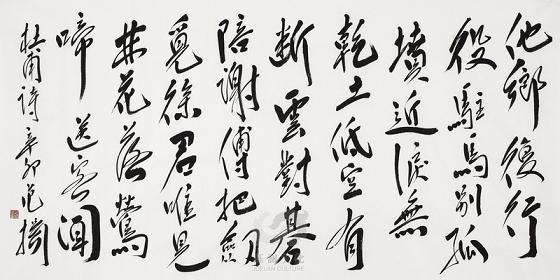 他鄉復行
役駐馬別孤
墳近淚無
乾土低空有
斷雲對碁
陪謝傅把劍
覓徐君唯見
林花落鶯
啼送客聞
杜甫詩辛卯
JUELAN CULTURE